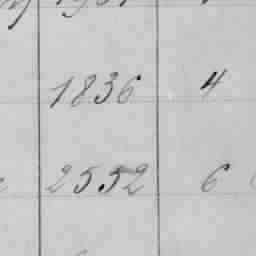 1836 4
2552 6